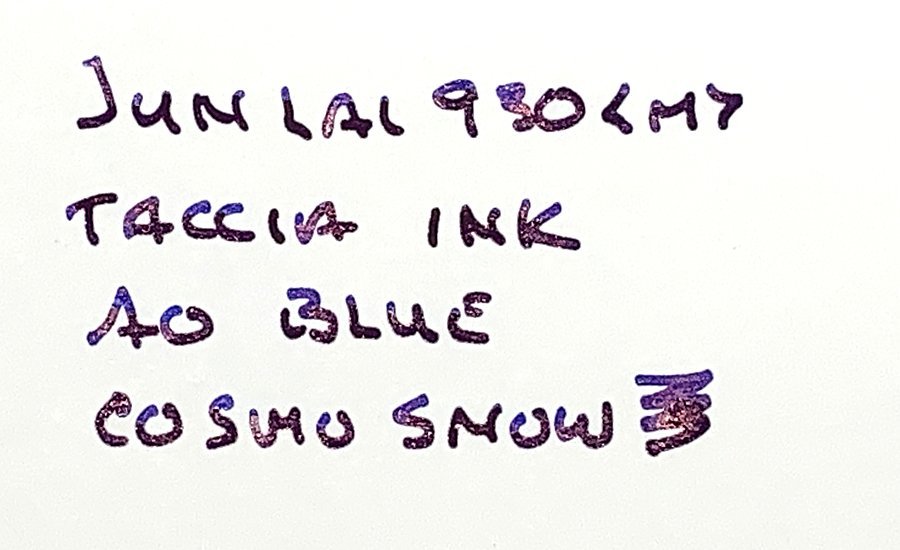 JUN LAI 930 <M>
TACCIA INK
AO BLUE
COSMO SNOW